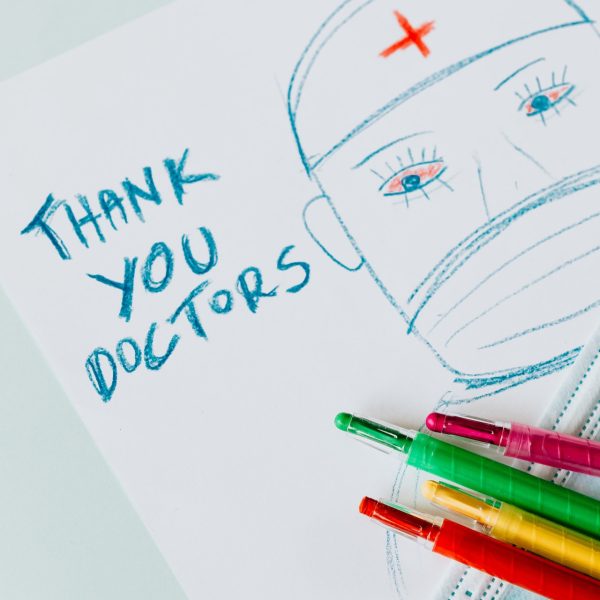 THANK
YOU
DOCTORS